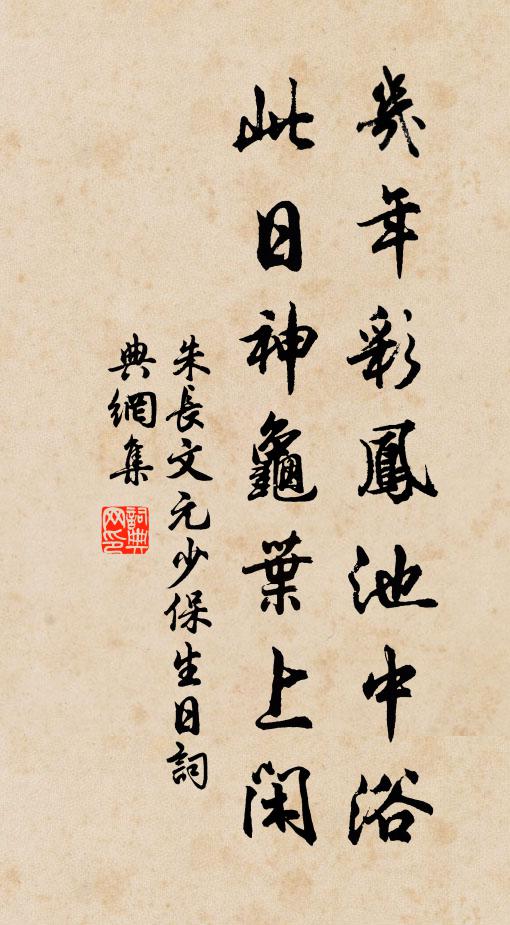 幾年彩鳳池中浴
此日神龜葉上閑
朱長文元少保生日詞
典網集
詞典
网印